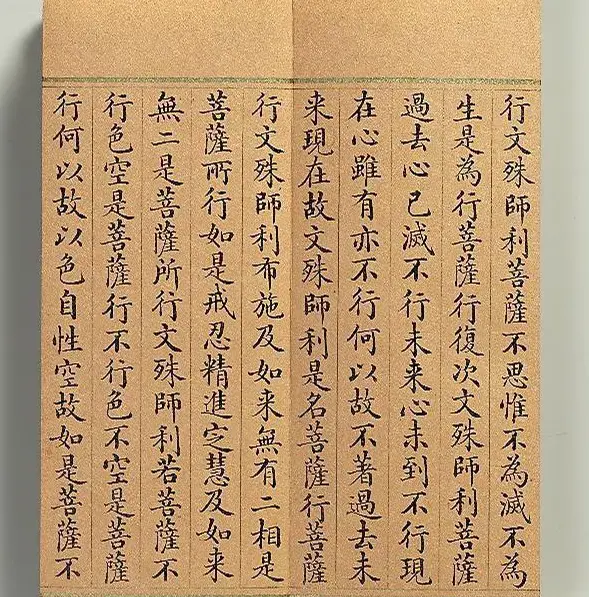 行文殊師利菩薩不思惟不為滅不為
生是為行菩薩行復次文殊師利菩薩
過去心已滅不行未来心未到不行現
在心雖有亦不行何以故不著過去未
来現在故文殊師利是名菩薩行菩薩
行文殊師利布施及如来無有二相是
菩薩所行如是戒忍精進定慧及如来
無二是菩薩所行文殊師利若菩薩不
行色空是菩薩行不行色不空是菩薩
行何以故以色自性空故如是菩薩不